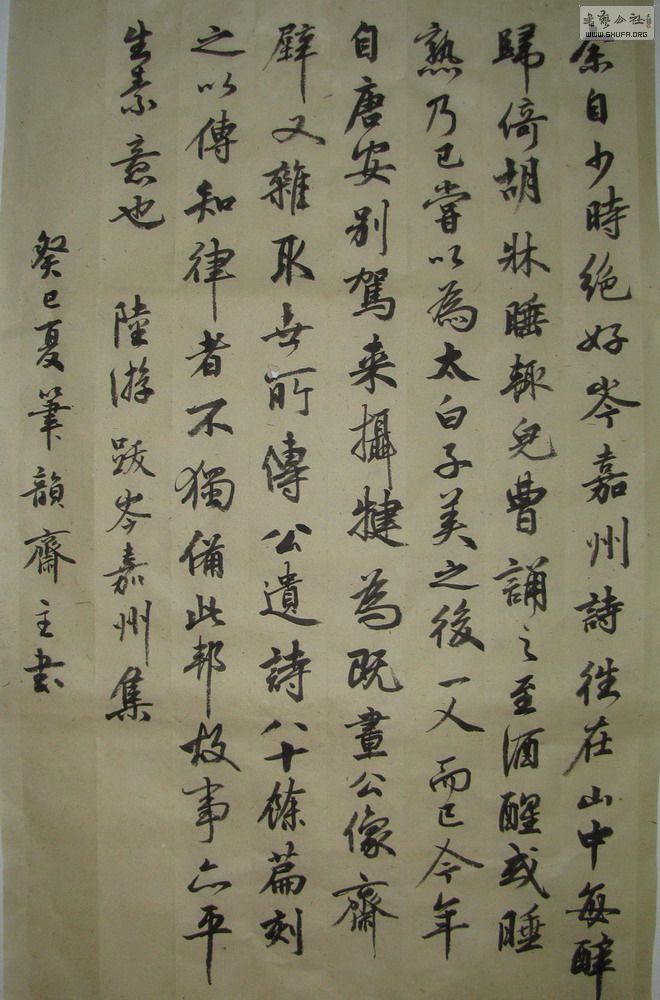 余自少時絶好岑嘉州詩徃在山中每醉
歸倚胡牀睡輒兒曹誦之至酒醒或睡
熟乃已嘗以為太白子美之後一人而已今年
自唐安别駕来攝犍為既畫公像齋
壁又雜取世所傳公遺詩八十餘篇刻
之以傳知律者不獨備此邦故事亦平
生素意也 陸游跋岑嘉州集
癸巳夏筆韻齋主書
書藝公社
WWW.SHUFA.ORG